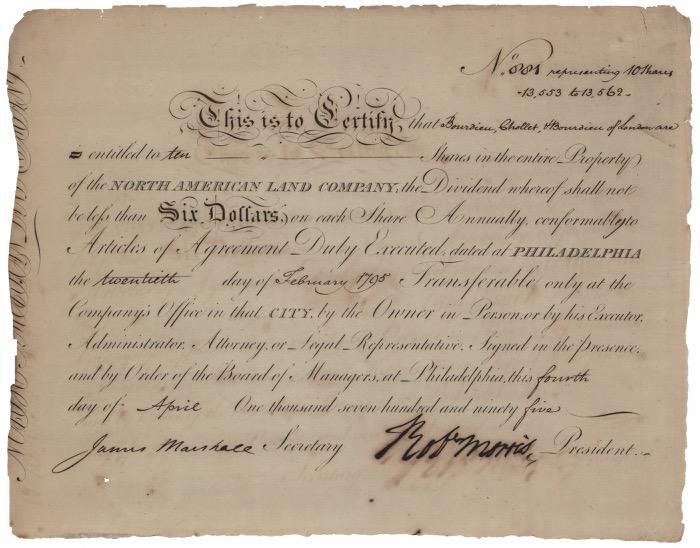 No. 881 representing 10 Shares
-13,553 to 13,562-
This is to Certify, that Bourdieu, Chollet, & Bourdieu of London are
entitled to ten Shares in the entire Property
of the NORTH AMERICAN LAND COMPANY, the Dividend whereof shall not
be less than Six Dollars, on each Share Annually, conformably to
Articles of Agreement Duly Executed, dated at PHILADELPHIA
the twentieth day of February 1795 Transferable only at the
Company's Office in that CITY, by the Owner in Person, or by his Executor,
Administrator, Attorney, or Legal Representative. Signed in the Presence,
and by Order of the Board of Managers, at Philadelphia, this fourth
day of April One thousand seven hundred and ninety five
James Marshall Secretary Robt Morris, President.